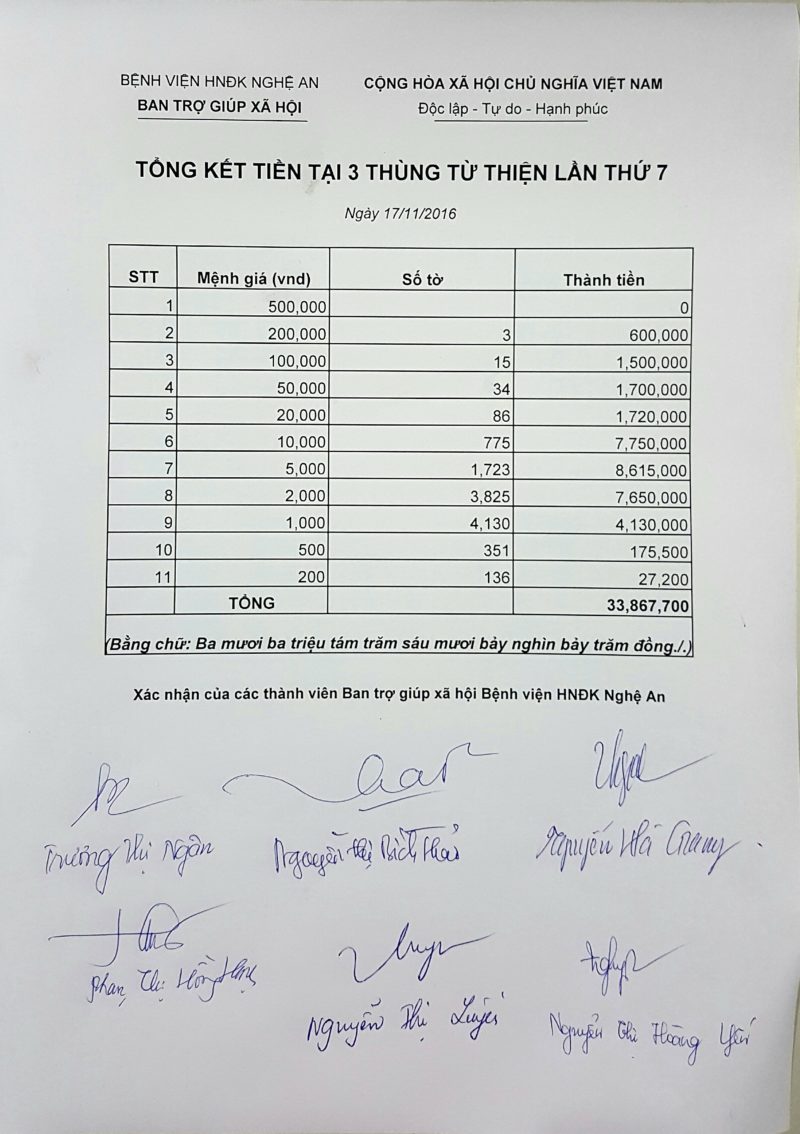 BỆNH VIỆN HNĐK NGHỆ AN CỘNG HÒA XÃ HỘI CHỦ NGHĨA VIỆT NAM
BAN TRỢ GIÚP XÃ HỘI Độc lập - Tự do - Hạnh phúc
TỔNG KẾT TIỀN TẠI 3 THÙNG TỪ THIỆN LẦN THỨ 7
Ngày 17/11/2016
STT Mệnh giá (vnd) Số tờ Thành tiền
1 500,000 0
2 200,000 3 600,000
3 100,000 15 1,500,000
4 50,000 34 1,700,000
5 20,000 86 1,720,000
6 10,000 775 7,750,000
7 5,000 1,723 8,615,000
8 2,000 3,825 7,650,000
9 1,000 4,130 4,130,000
10 500 351 175,500
11 200 136 27,200
TỔNG 33,867,700
(Bằng chữ: Ba mươi ba triệu tám trăm sáu mươi bảy nghìn bảy trăm đồng./.)
Xác nhận của các thành viên Ban trợ giúp xã hội Bệnh viện HNĐK Nghệ An
Trương Thị Ngân Nguyễn Thị Bích Nguyễn Hà Giang
Phan Thị Hồng
Nguyễn Thị Nguyễn Thị Hoàng Yến